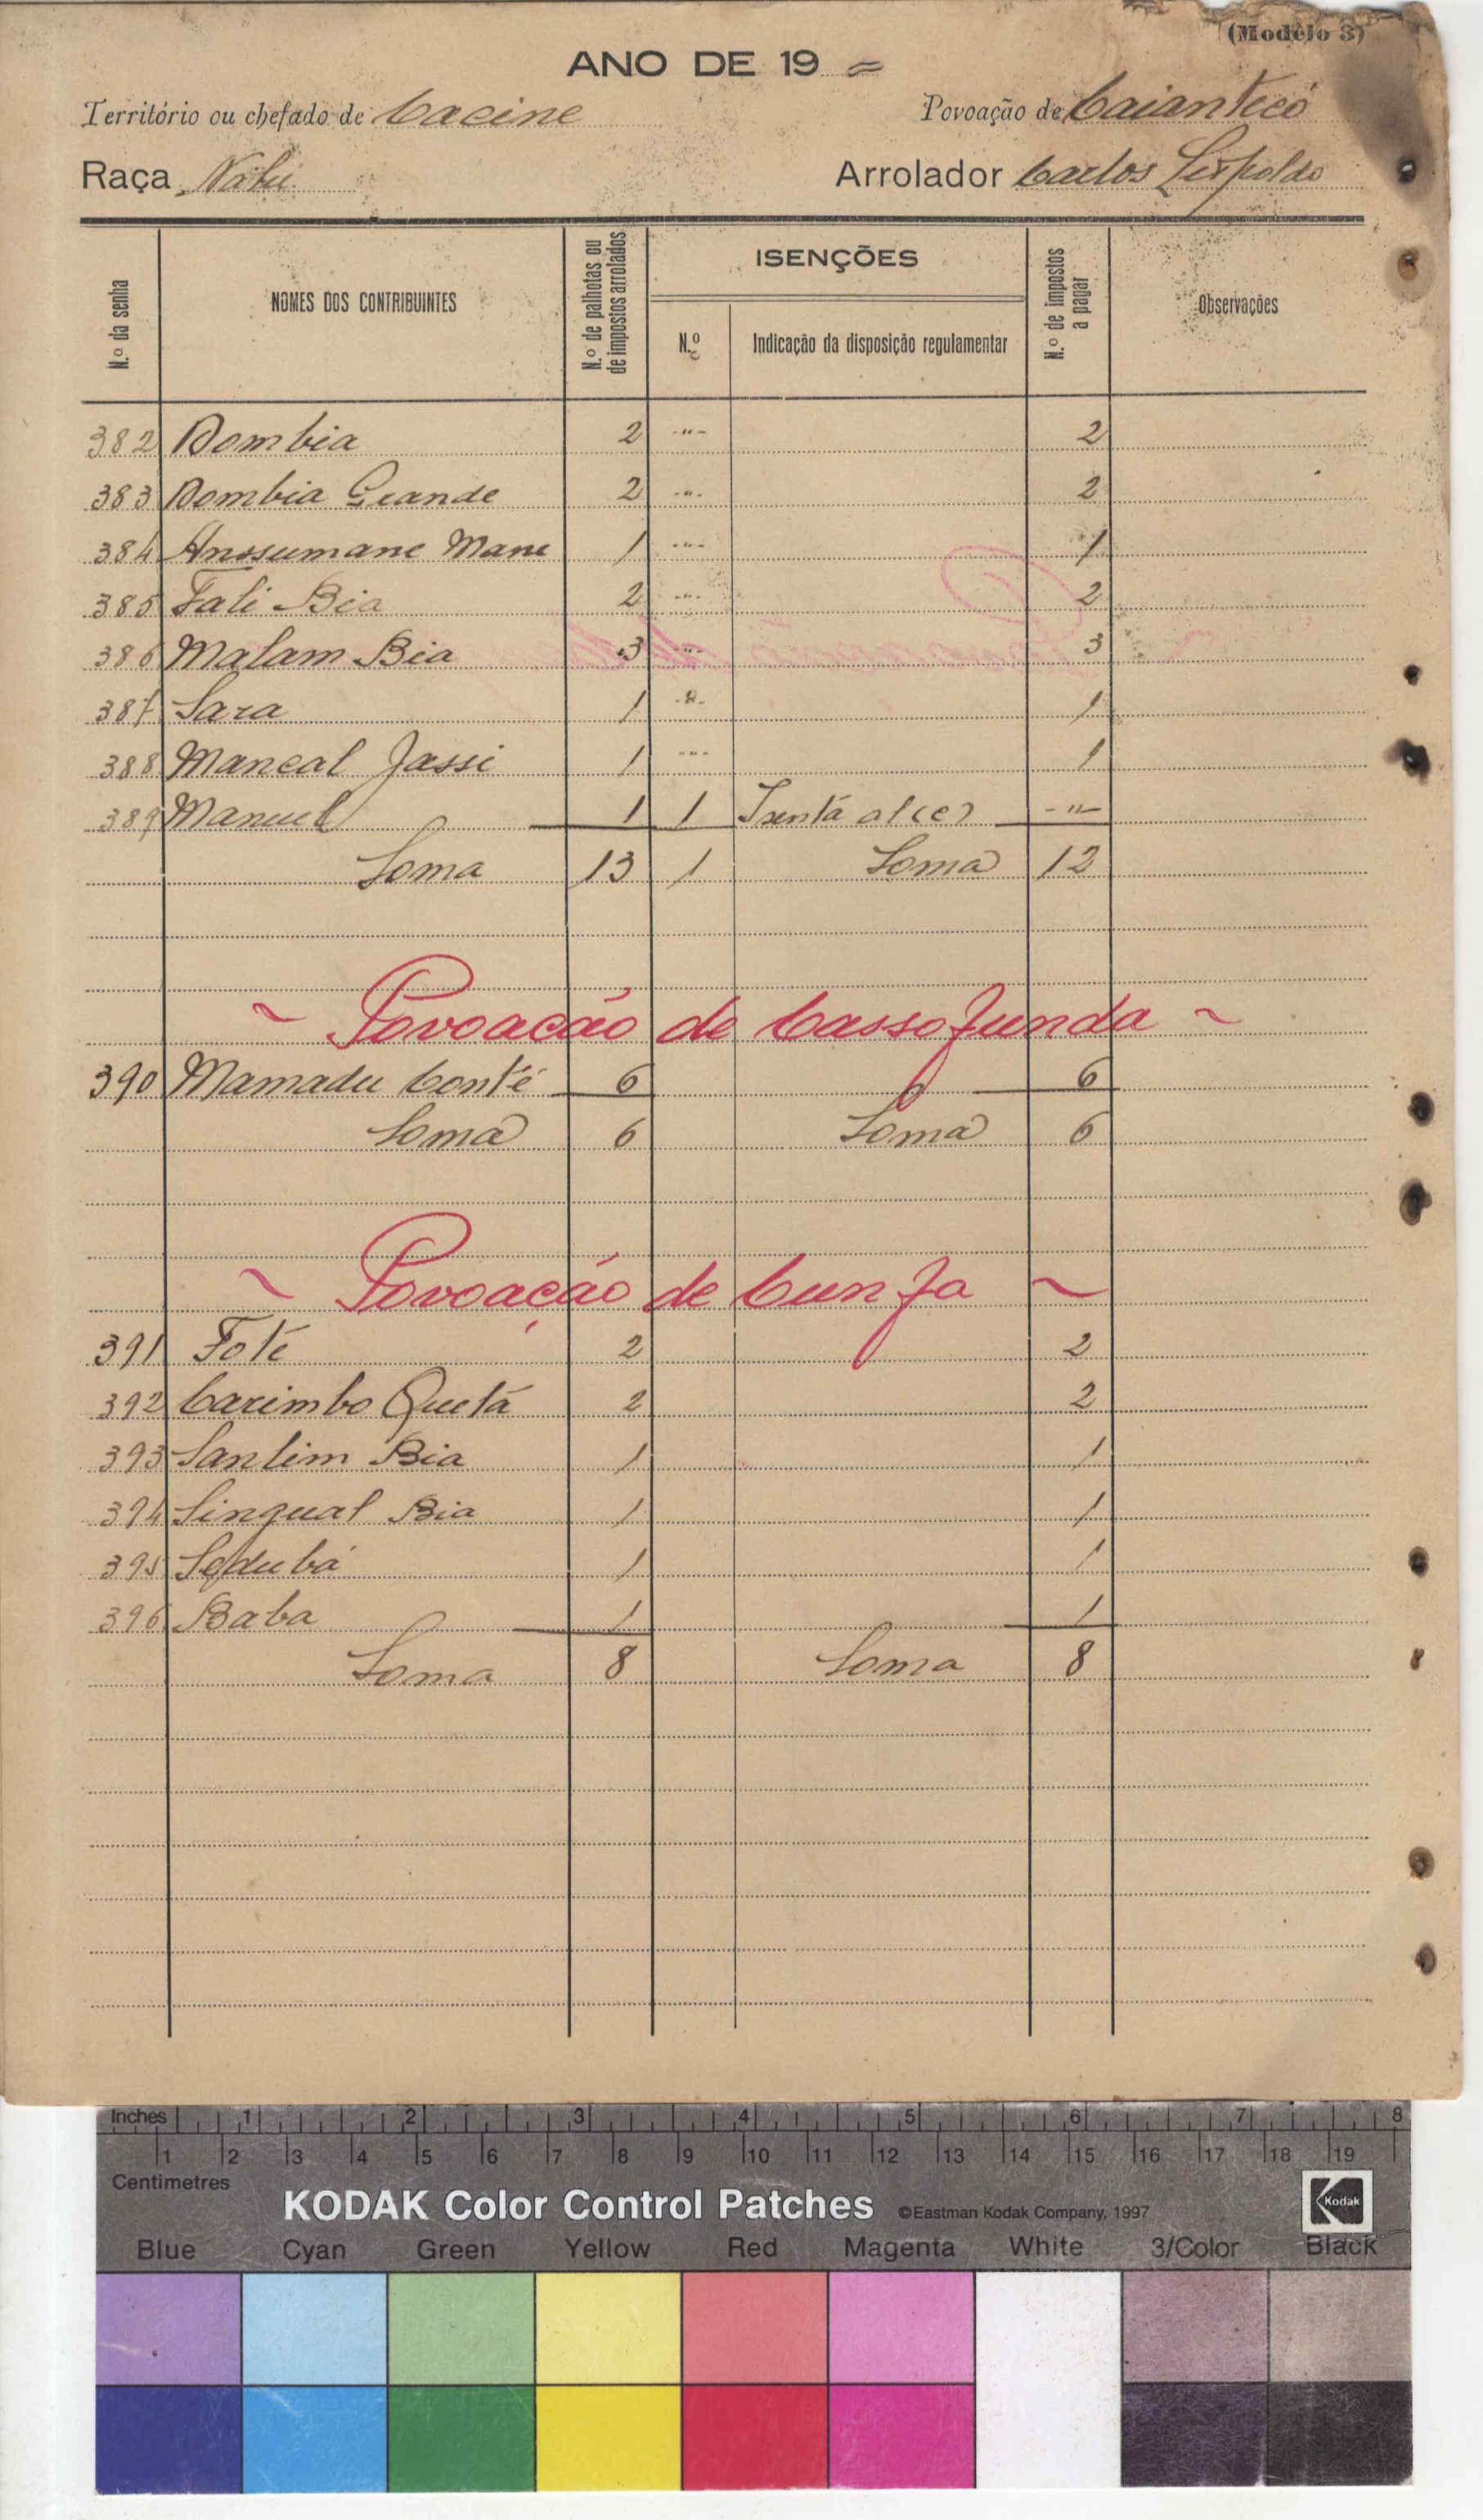 (Modêlo 3)
ANO DE 19 =
Território ou chefado de Cacine Povoação de Caiantecó
Raça Nalú Arrolador Carlos Leopoldo
N.º da senha NOMES DOS CONTRIBUINTES N.º de palhotas ou de impostos arrolados ISENÇÕES N.º de impostos a pagar Observações
N.º Indicação da disposição regulamentar
382 Dombia 2 -"- 2
383 Dombia Grande 2 -"- 2
384 Anssumane Mane 1 -"- 1
385 Fali Bia 2 -"- 2
386 Malam Bia 3 -"- 3
387 Sara 1 -"- 1
388 Mancal Jassi 1 -"- 1
389 Manuel 1 1 -"-
Soma 13 1 Soma 12
~ Povoacão de Cassofunda ~
390 Mamadu Conté 6 6
Soma 6 Soma 6
~ Povoação de Cunfa ~
391 Foté 2 2
392 Carimbo Quetá 2 2
393 Santim Bia 1 1
394 Singual Bia 1 1
395 1 1
396 Baba 1 1
Soma 8 Soma 8
Inches 1 2 3 4 5 6 7 8
1 2 3 4 5 6 7 8 9 10 11 12 13 14 15 16 17 18 19
Centimetres
KODAK Color Control Patches ©Eastman Kodak Company, 1997 Kodak
Blue Cyan Green Yellow Red Magenta White 3/Color Black